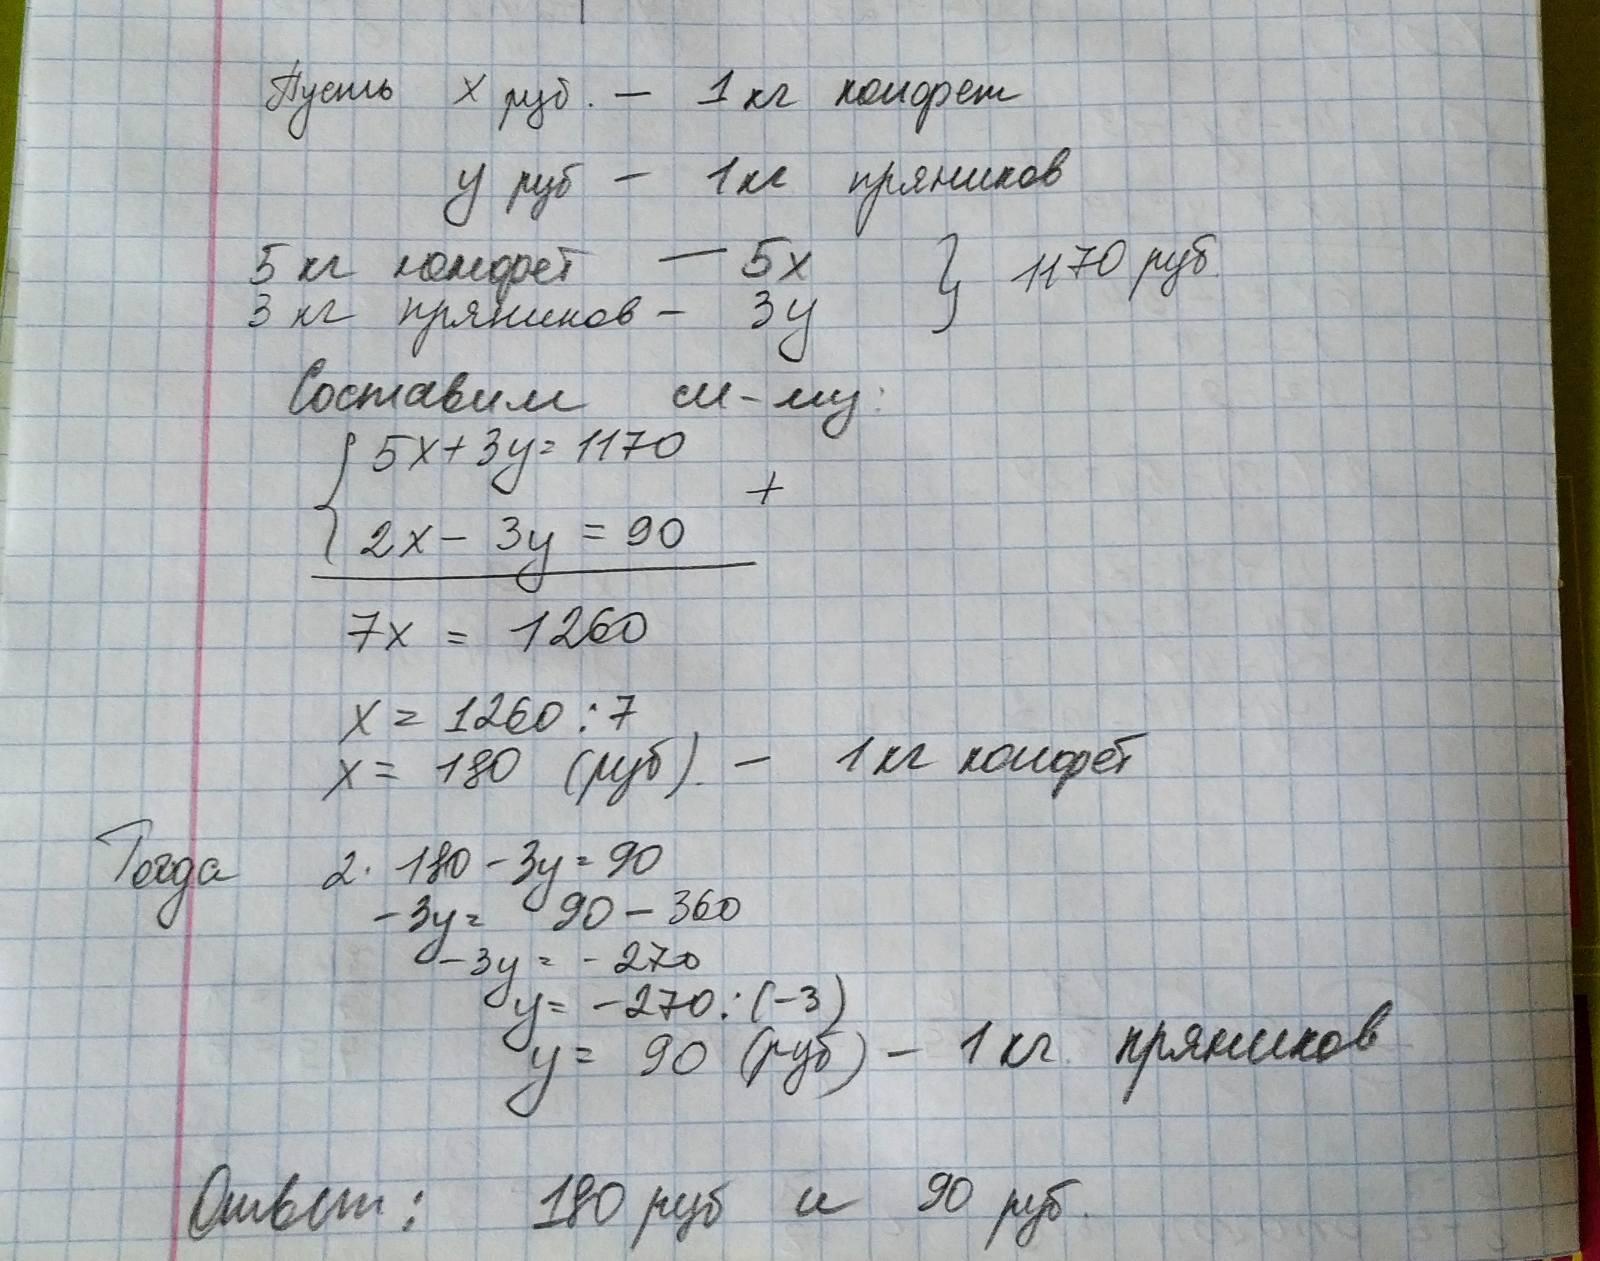 Пусть x руб. – 1 кг конфет
y руб – 1 кг пряников
5 кг конфет – 5x
3 кг пряников – 3y } 1170 руб.
Составим си-му:
{ 5x + 3y = 1170
+
2x – 3y = 90
7x = 1260
x = 1260 : 7
x = 180 (руб). – 1 кг конфет
Тогда 2 · 180 – 3y = 90
–3y = 90 – 360
–3y = –270
y = –270 : (–3)
y = 90 (руб) – 1 кг. пряников
Ответ: 180 руб и 90 руб.